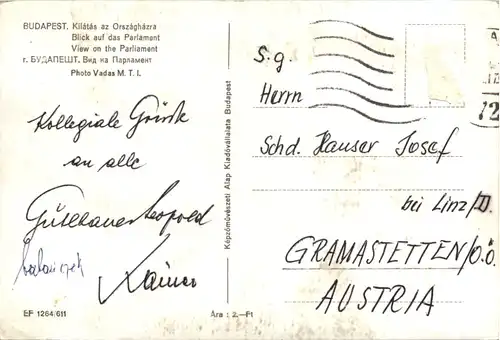 BUDAPEST. Kilátás az Országházra
Blick auf das Parlament
View on the Parliament
г. БУДАПЕШТ. Вид на Парламент
Photo Vadas M. T. I.
Kollegiale Grüße
an alle
Leopold
Rainer
EF 1264/611
Ára : 2.—Ft
Képzőművészeti Alap Kiadóvállalata Budapest
S. g.
Herrn
Schd. Hauser Josef
bei Linz/D.
GRAMASTETTEN/O.Ö.
AUSTRIA